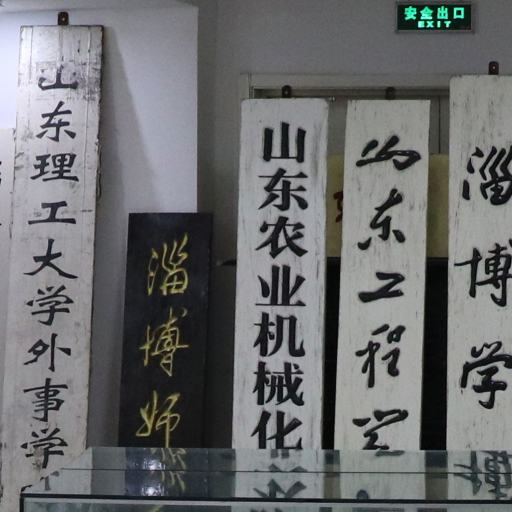 安全出口
EXIT
山东理工大学外事学
淄博师
山东农业机械化
山东工程学
淄博学